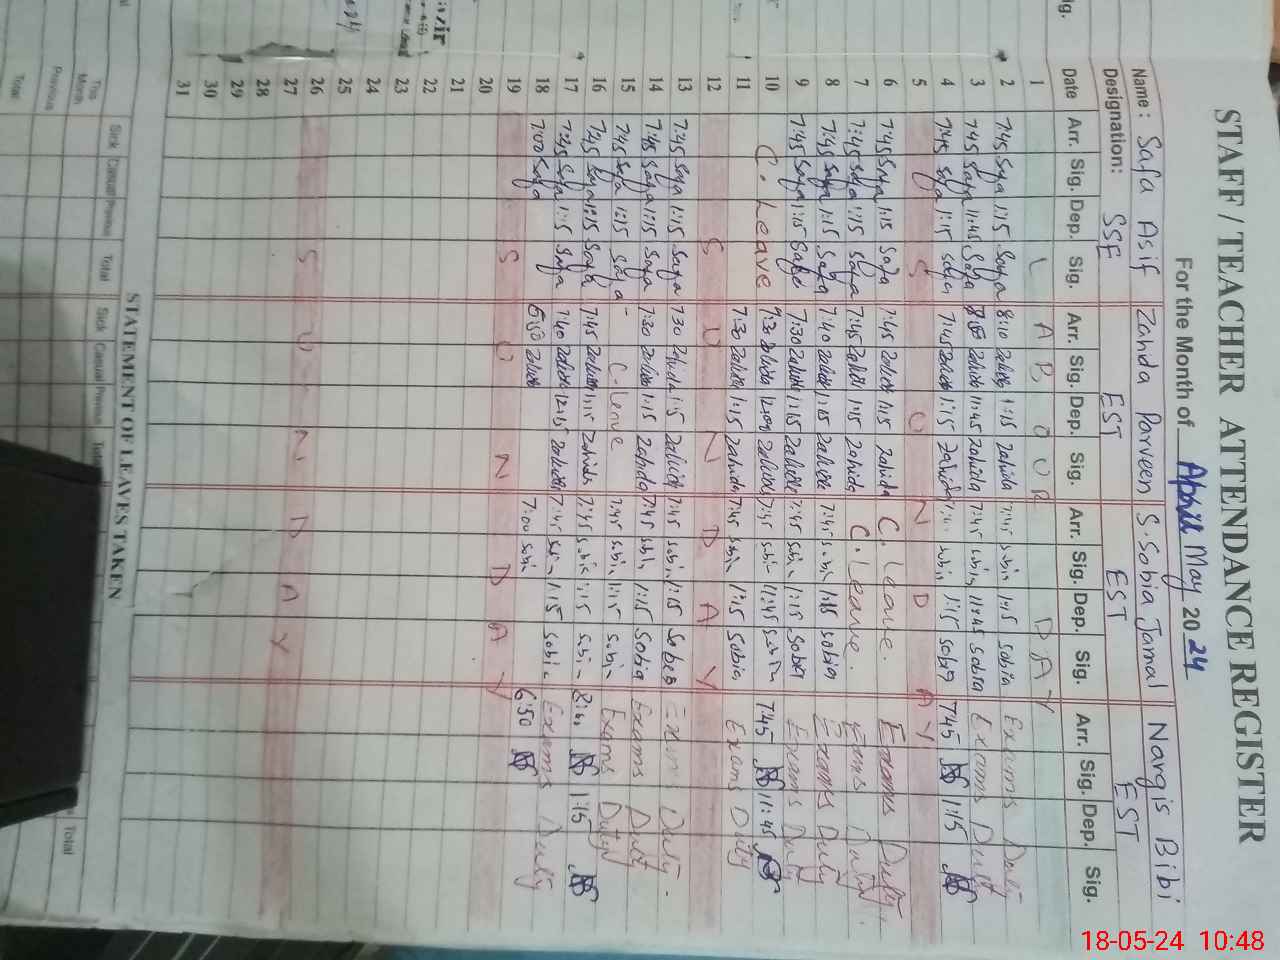 STAFF / TEACHER ATTENDANCE REGISTER
For the Month of April May 2024
Name : Safa Asif Zahda Parveen S. Sobia Jamal Nargis Bibi
Designation: SSE EST EST EST
Date Arr. Sig. Dep. Sig. Arr. Sig. Dep. Sig. Arr. Sig. Dep. Sig. Arr. Sig. Dep. Sig.
1 L A B O U R D A Y
2 7:45 Safa 1:15 Safa 8:10 Zahida 1:15 Zahida 7:45 Sobia 1:15 Sobia Exams Duty
3 7:45 Safa 11:45 Safa Zahida 11:45 Zahida 7:45 Sobia 11:45 Sobia Exams Duty
4 7:45 Safa 1:15 Safa 7:45 Zahida 1:15 Zahida Sobia 1:15 Sobia 7:45 1:15
5 S U N D A Y
6 7:45 Safa 1:15 Safa 7:45 Zahida 1:15 Zahida C. Leave. Exams Duty.
7 7:45 Safa 1:15 Safa 7:45 Zahida 1:15 Zahida C. Leave. Exams Duty
8 7:45 Safa 1:15 Safa 7:40 Zahida 1:15 Zahida 7:45 Sobia 1:15 Sobia Exams Duty
9 7:45 Safa 1:15 Safa 7:30 Zahida 1:15 Zahida 7:45 Sobia 1:15 Sobia Exams Duty
10 C. Leave 7:30 Zahida 12:00 Zahida 7:45 Sobia 11:45 Sobia 7:45 11:45
11 7:30 Zahida 1:15 Zahida 7:45 Sobia 1:15 Sobia Exams Duty
12 S U N D A Y
13 7:45 Safa 1:15 Safa 7:30 Zahida 1:15 Zahida 7:45 Sobia 1:15 Sobia Exam Duty.
14 7:45 Safa 1:15 Safa 7:30 Zahida 1:15 Zahida 7:45 Sobia 1:15 Sobia Exams Duty
15 7:45 Safa 1:15 Safa C. Leave 7:45 Sobia 1:15 Sobia Exams Duty
16 7:45 Safa 1:15 Safa 7:45 Zahida 1:15 Zahida 7:45 Sobia 1:15 Sobia 8:00 1:15
17 7:45 Safa 1:15 Safa 7:40 Zahida 12:15 Zahida 7:45 Sobia 1:15 Sobia Exams Duty
18 7:00 Safa 6:50 Zahida 7:00 Sobia 6:50
19 S U N D A Y
20
21
22
23
24
25
26 S U N D A Y
27
28
29
30
31
STATEMENT OF LEAVES TAKEN
Sick Casual Previous Total Sick Casual Previous Total
This Month
Previous
Total
18-05-24 10:48